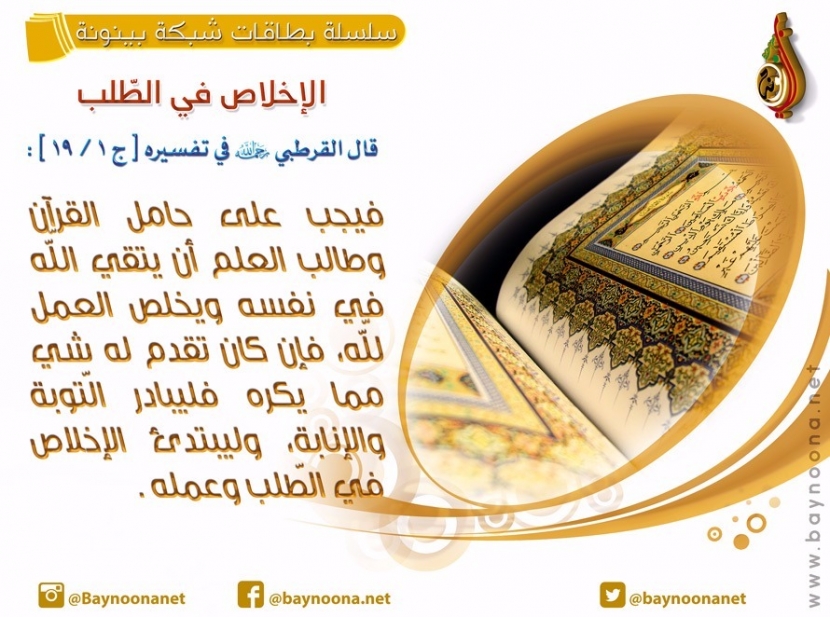 سلسلة بطاقات شبكة بينونة
الإخلاص في الطّلب
قال القرطبي رحمه الله في تفسيره [ ج ١ / ١٩ ] :
فيجب على حامل القرآن
وطالب العلم أن يتقي اللّه
في نفسه ويخلص العمل
للّه، فإن كان تقدم له شي
مما يكره فليبادر التّوبة
والإنابة، وليبتدئ الإخلاص
في الطّلب وعمله .
www.baynoona.net
@Baynoonanet
@baynoona.net
@baynoonanet